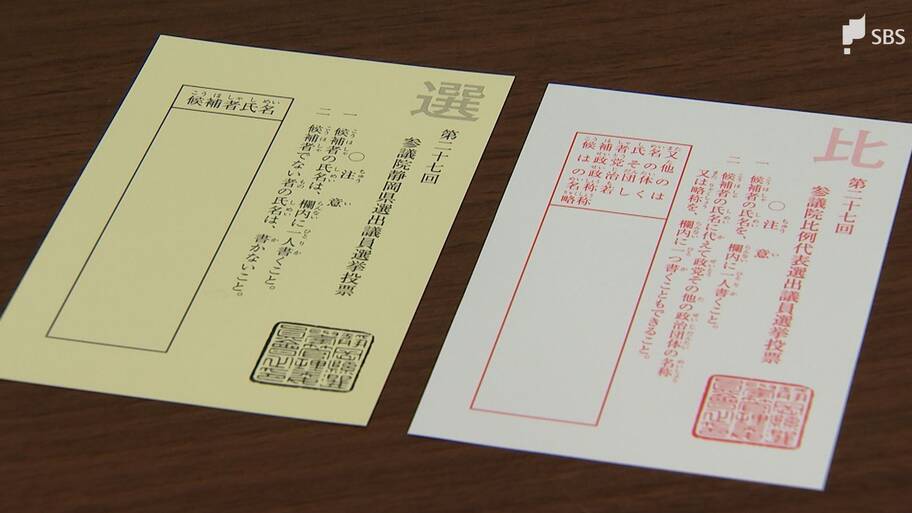 SBS
選
第二十七回
参議院静岡県選出議員選挙投票
〇注意
一 候補者の氏名は、欄内に一人書くこと。
二 候補者でない者の氏名は、書かないこと。
候補者氏名
比
第二十七回
参議院比例代表選出議員選挙投票
〇注意
一 候補者の氏名を、欄内に一人書くこと。
二 候補者の氏名に代えて政党その他の政治団体の名称
又は略称を、欄内に一つ書くこともできること。
候補者氏名又は
政党その他の
政治団体の名称
若しくは略称